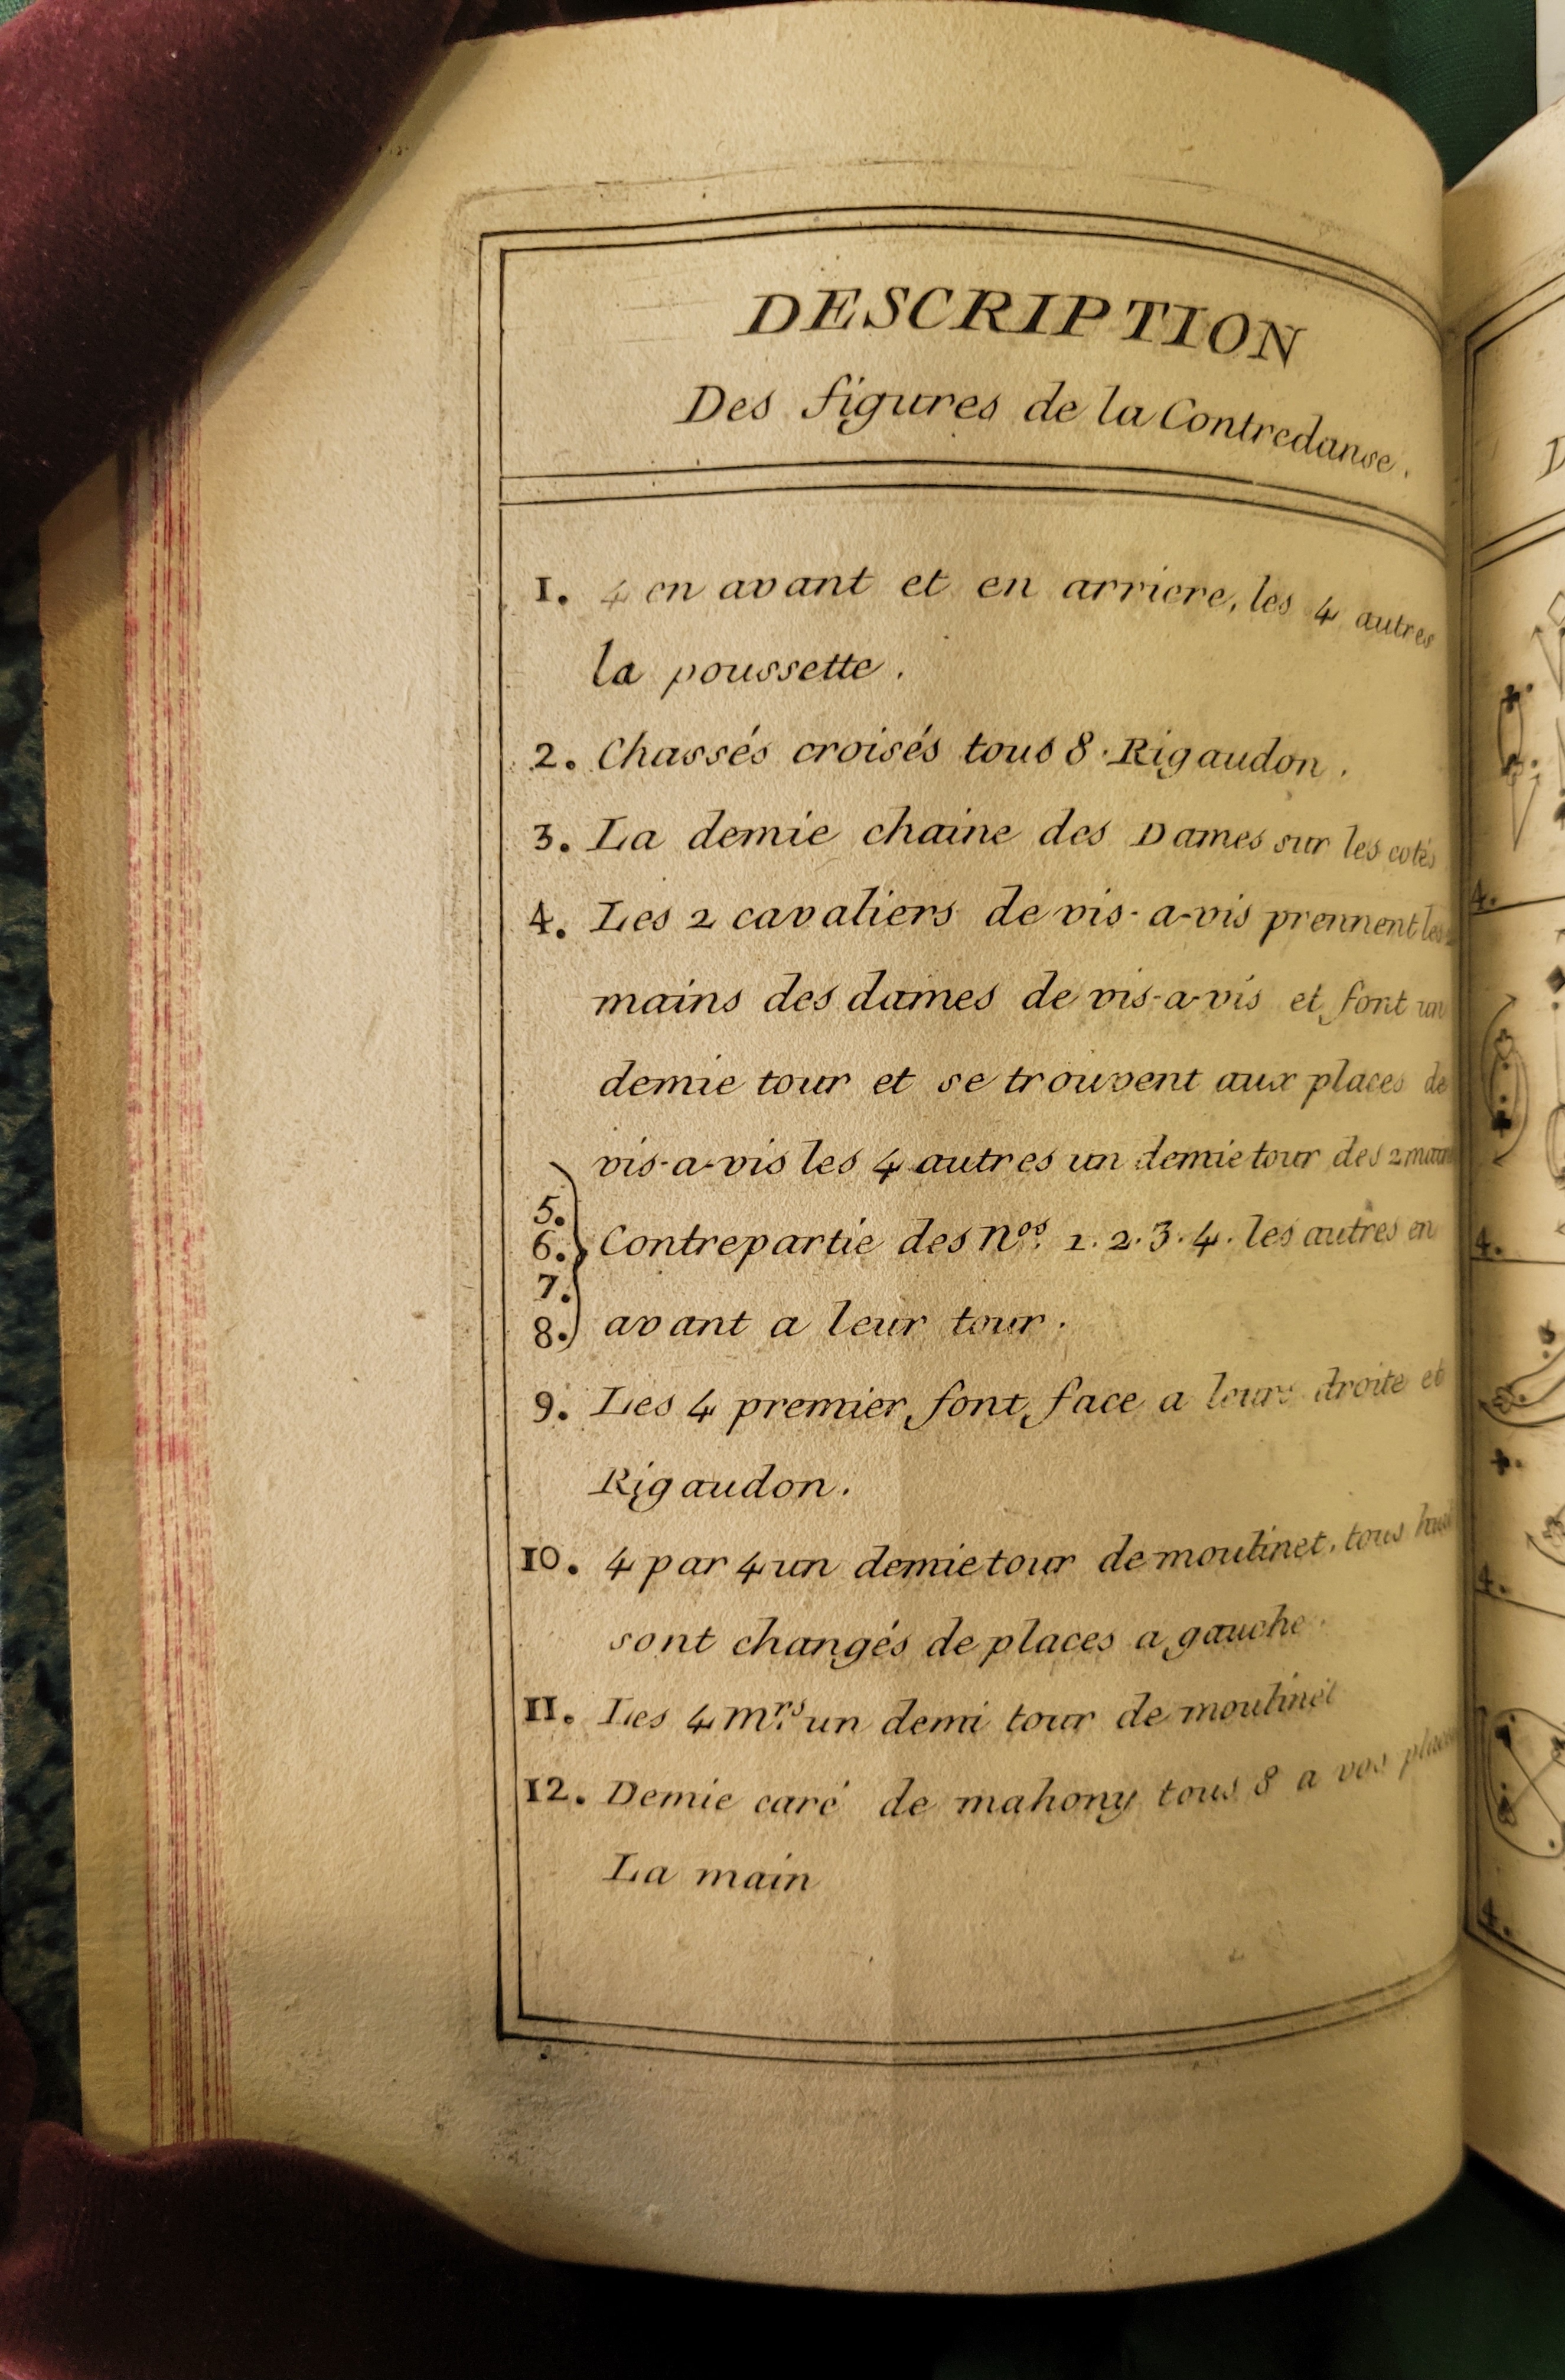 DESCRIPTION
Des figures de la Contredanse.
1. 4 en avant et en arriere, les 4 autres
la poussette.
2. Chassés croisés tous 8. Rigaudon.
3. La demie chaine des Dames sur les cotés
4. Les 2 cavaliers de vis-a-vis prennent les
mains des dames de vis-a-vis et font un
demie tour et se trouvent aux places de
vis-a-vis les 4 autres un demie tour des 2
5.
6. Contrepartie des nos. 1. 2. 3. 4. les autres en
7.
8. avant a leur tour.
9. Les 4 premier font face a leurs droite et
Rigaudon.
10. 4 par 4 un demie tour de moulinet. tous
sont changés de places a gauche.
11. Les 4 mrs. un demi tour de moulinet
12. Demie caré de mahony tous 8 a vos
La main
4.
4.
4.
4.